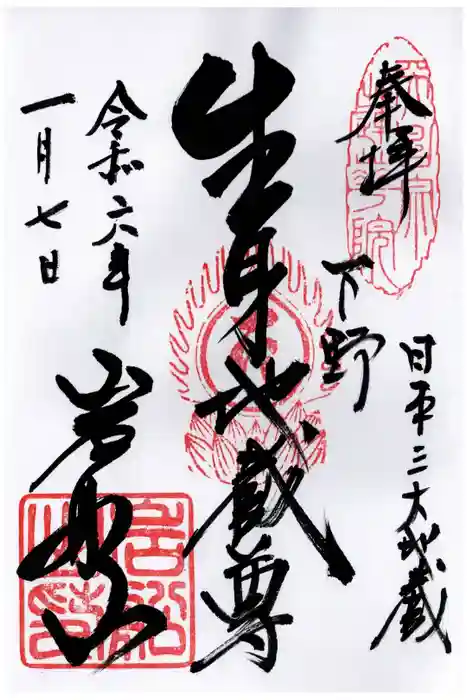 奉拝
下野
日本三大地蔵
生身地蔵尊
岩船山
令和六年
一月七日